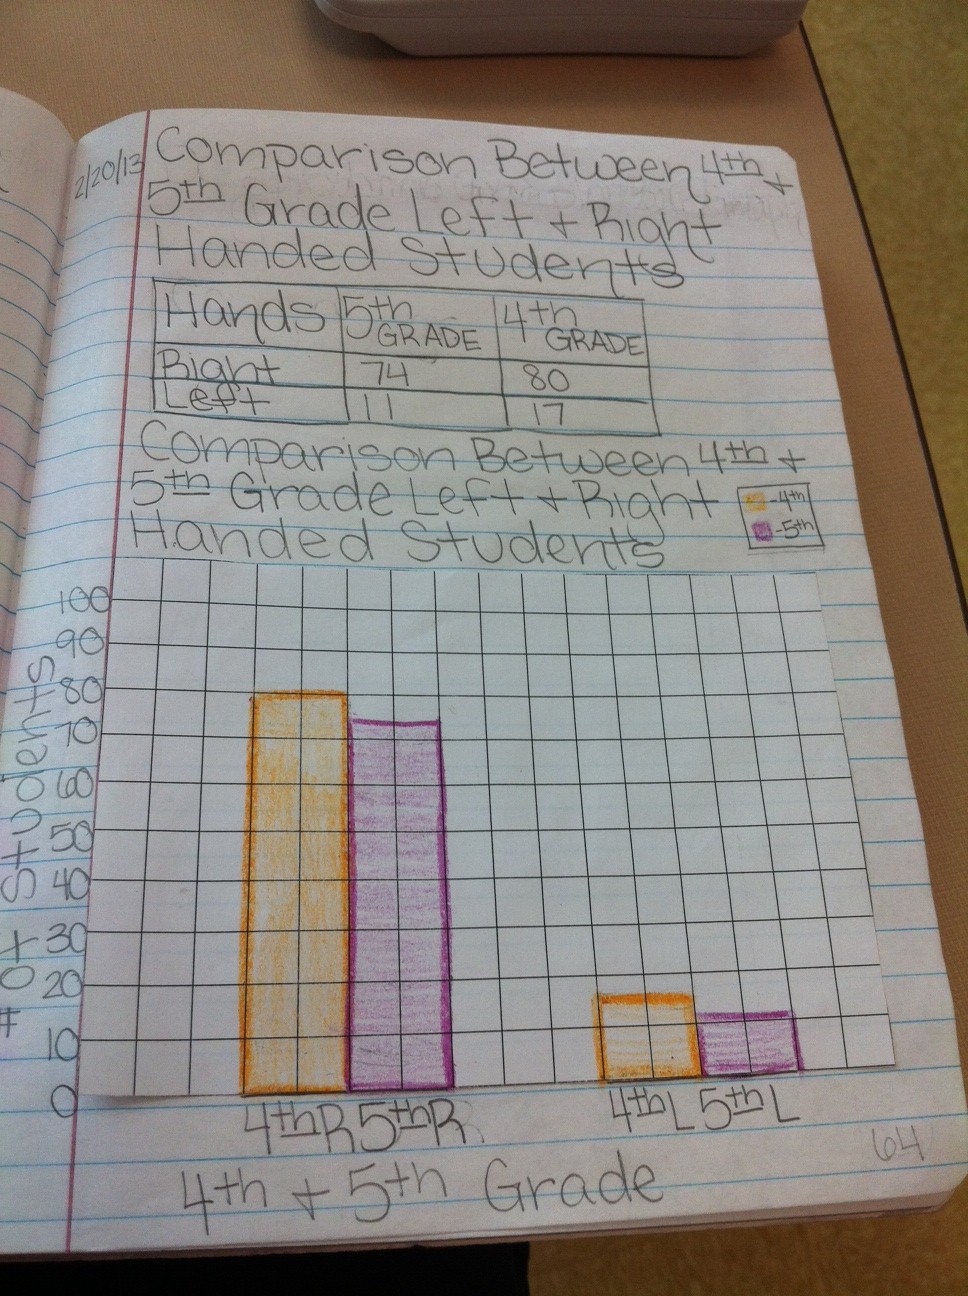 2/20/13
Comparison Between 4th +
5th Grade Left + Right
Handed Students
Hands 5th GRADE 4th GRADE
Right 74 80
Left 11 17
Comparison Between 4th +
5th Grade Left + Right
Handed Students
-4th
-5th
# of Students
100
90
80
70
60
50
40
30
20
10
0
4th R 5th R 4th L 5th L
4th + 5th Grade
64